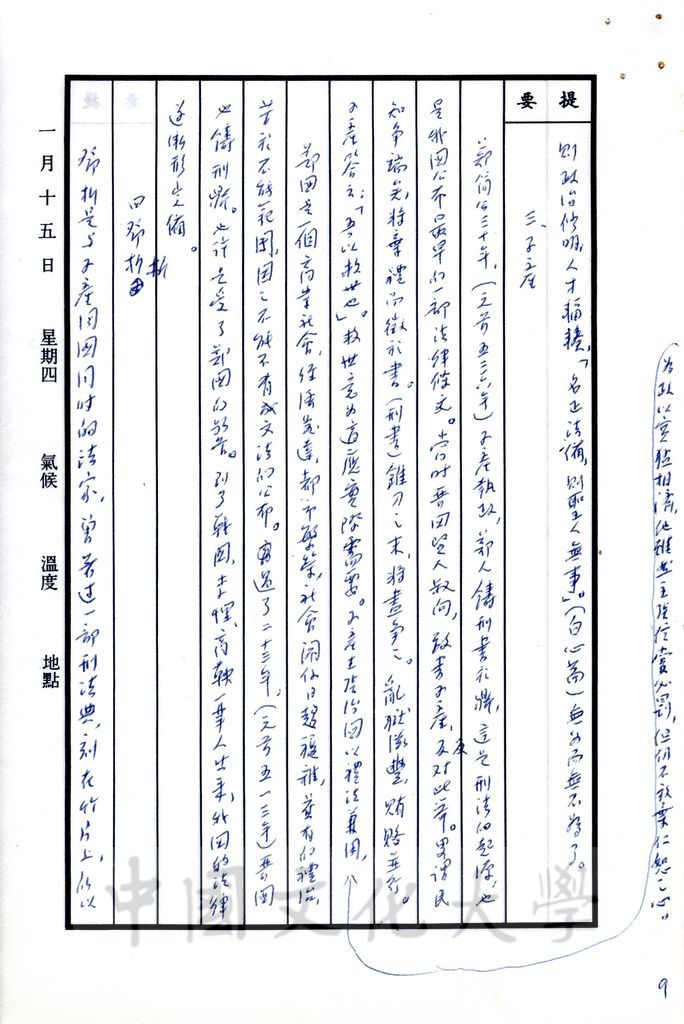 為政以寬猛相濟，他雖然主張信賞必罰，但仍不放棄仁恕之心。
提要
則政治修明，人才輻輳，「名正法備，則聖人無事」。(白心篇)無為而無不為了。
三、子產
鄭簡公三十年，(元前五三六年)子產執政，鄭人鑄刑書於鼎，這是刑法的起源，也
是我國公布最早的一部法律條文。當時晉國賢人叔向，致書子產，反對此舉。略謂民
知爭端矣，將棄禮而徵於書。(刑書)錐刀之末，將盡爭之。亂獄滋豐，賄賂並行。
子產答云：「吾以救世也」。救世意為適應實際需要。子產主張治國以禮法兼用，
鄭國是一個商業社會，經濟發達，都市繁榮，社會關係日趨複雜，舊有的禮治，
苦於不能範圍，因之不能不有成文法的公布。再過了二十三年，(元前五一三年)晉國
也鑄刑鼎。也許是受了鄭國的影響。到了韓國，李悝，商鞅一輩人出來，我國的法律
逐漸形完備。
四鄧析
析
鄧析是與子產同國同時的法家，曾著過一部刑法典，刻在竹片上，所以
一月十五日 星期四 氣候 溫度 地點
9
中國文化大學